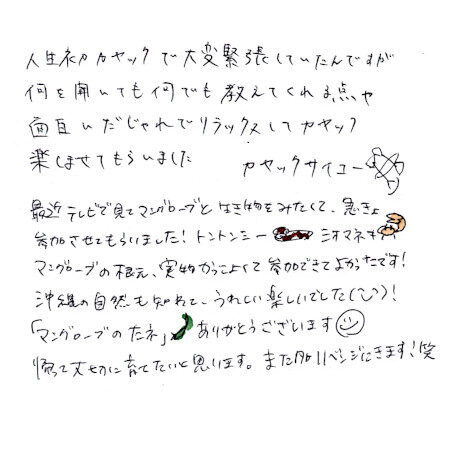 人生初カヤックで大変緊張していたんですが
何を聞いても何でも教えてくれる点や
面白いだじゃれでリラックスしてカヤック
楽しませてもらいました
カヤックサイコー
最近テレビで見てマングローブと生き物をみたくて、急きょ
参加させてもらいました!トントンミー シオマネキ
マングローブの根元、実物かっこよくて参加できてよかったです!
沖縄の自然も知れて、うれしい楽しいでした(◡)!
「マングローブのたネ」ありがとうございます
帰って大切に育てたいと思います。また リベンジにきます!笑